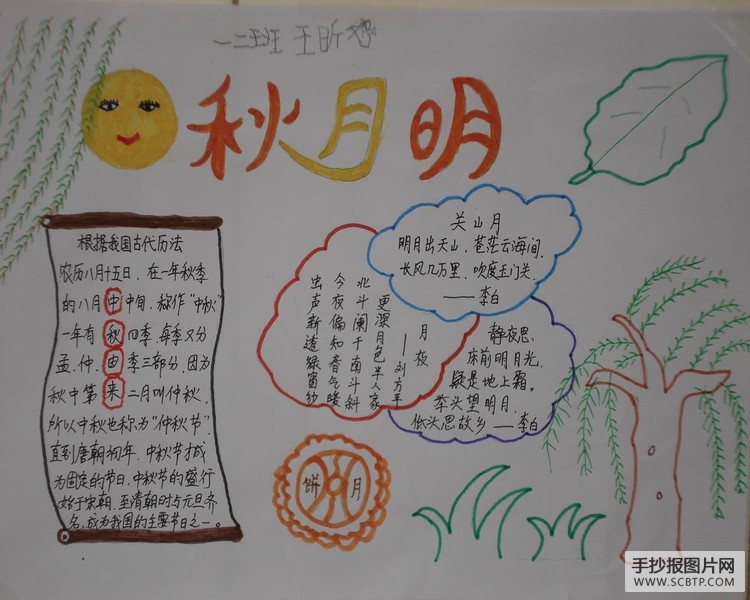 一二班 王昕
秋月明
根据我国古代历法
农历八月十五日，在一年秋季
的八月中中旬，称作“中秋”
一年有秋四季，每季又分
孟、仲、由季三部分，因为
秋中第来二月叫仲秋，
所以中秋也称为“仲秋节”
直到唐朝初年，中秋节才成
为固定的节日，中秋节的盛行
始于宋朝，至清朝时与元旦齐
名，成为我国的主要节日之一。
关山月
明月出天山，苍茫云海间，
长风几万里，吹度玉门关。
——李白
月夜
——刘方平
更深月色半人家
北斗阑干南斗斜
今夜偏知春气暖
虫声新透绿窗纱
静夜思，
床前明月光，
疑是地上霜。
举头望明月，
低头思故乡 —— 李白
饼 月
手抄报图片网
WWW.SCBTP.COM